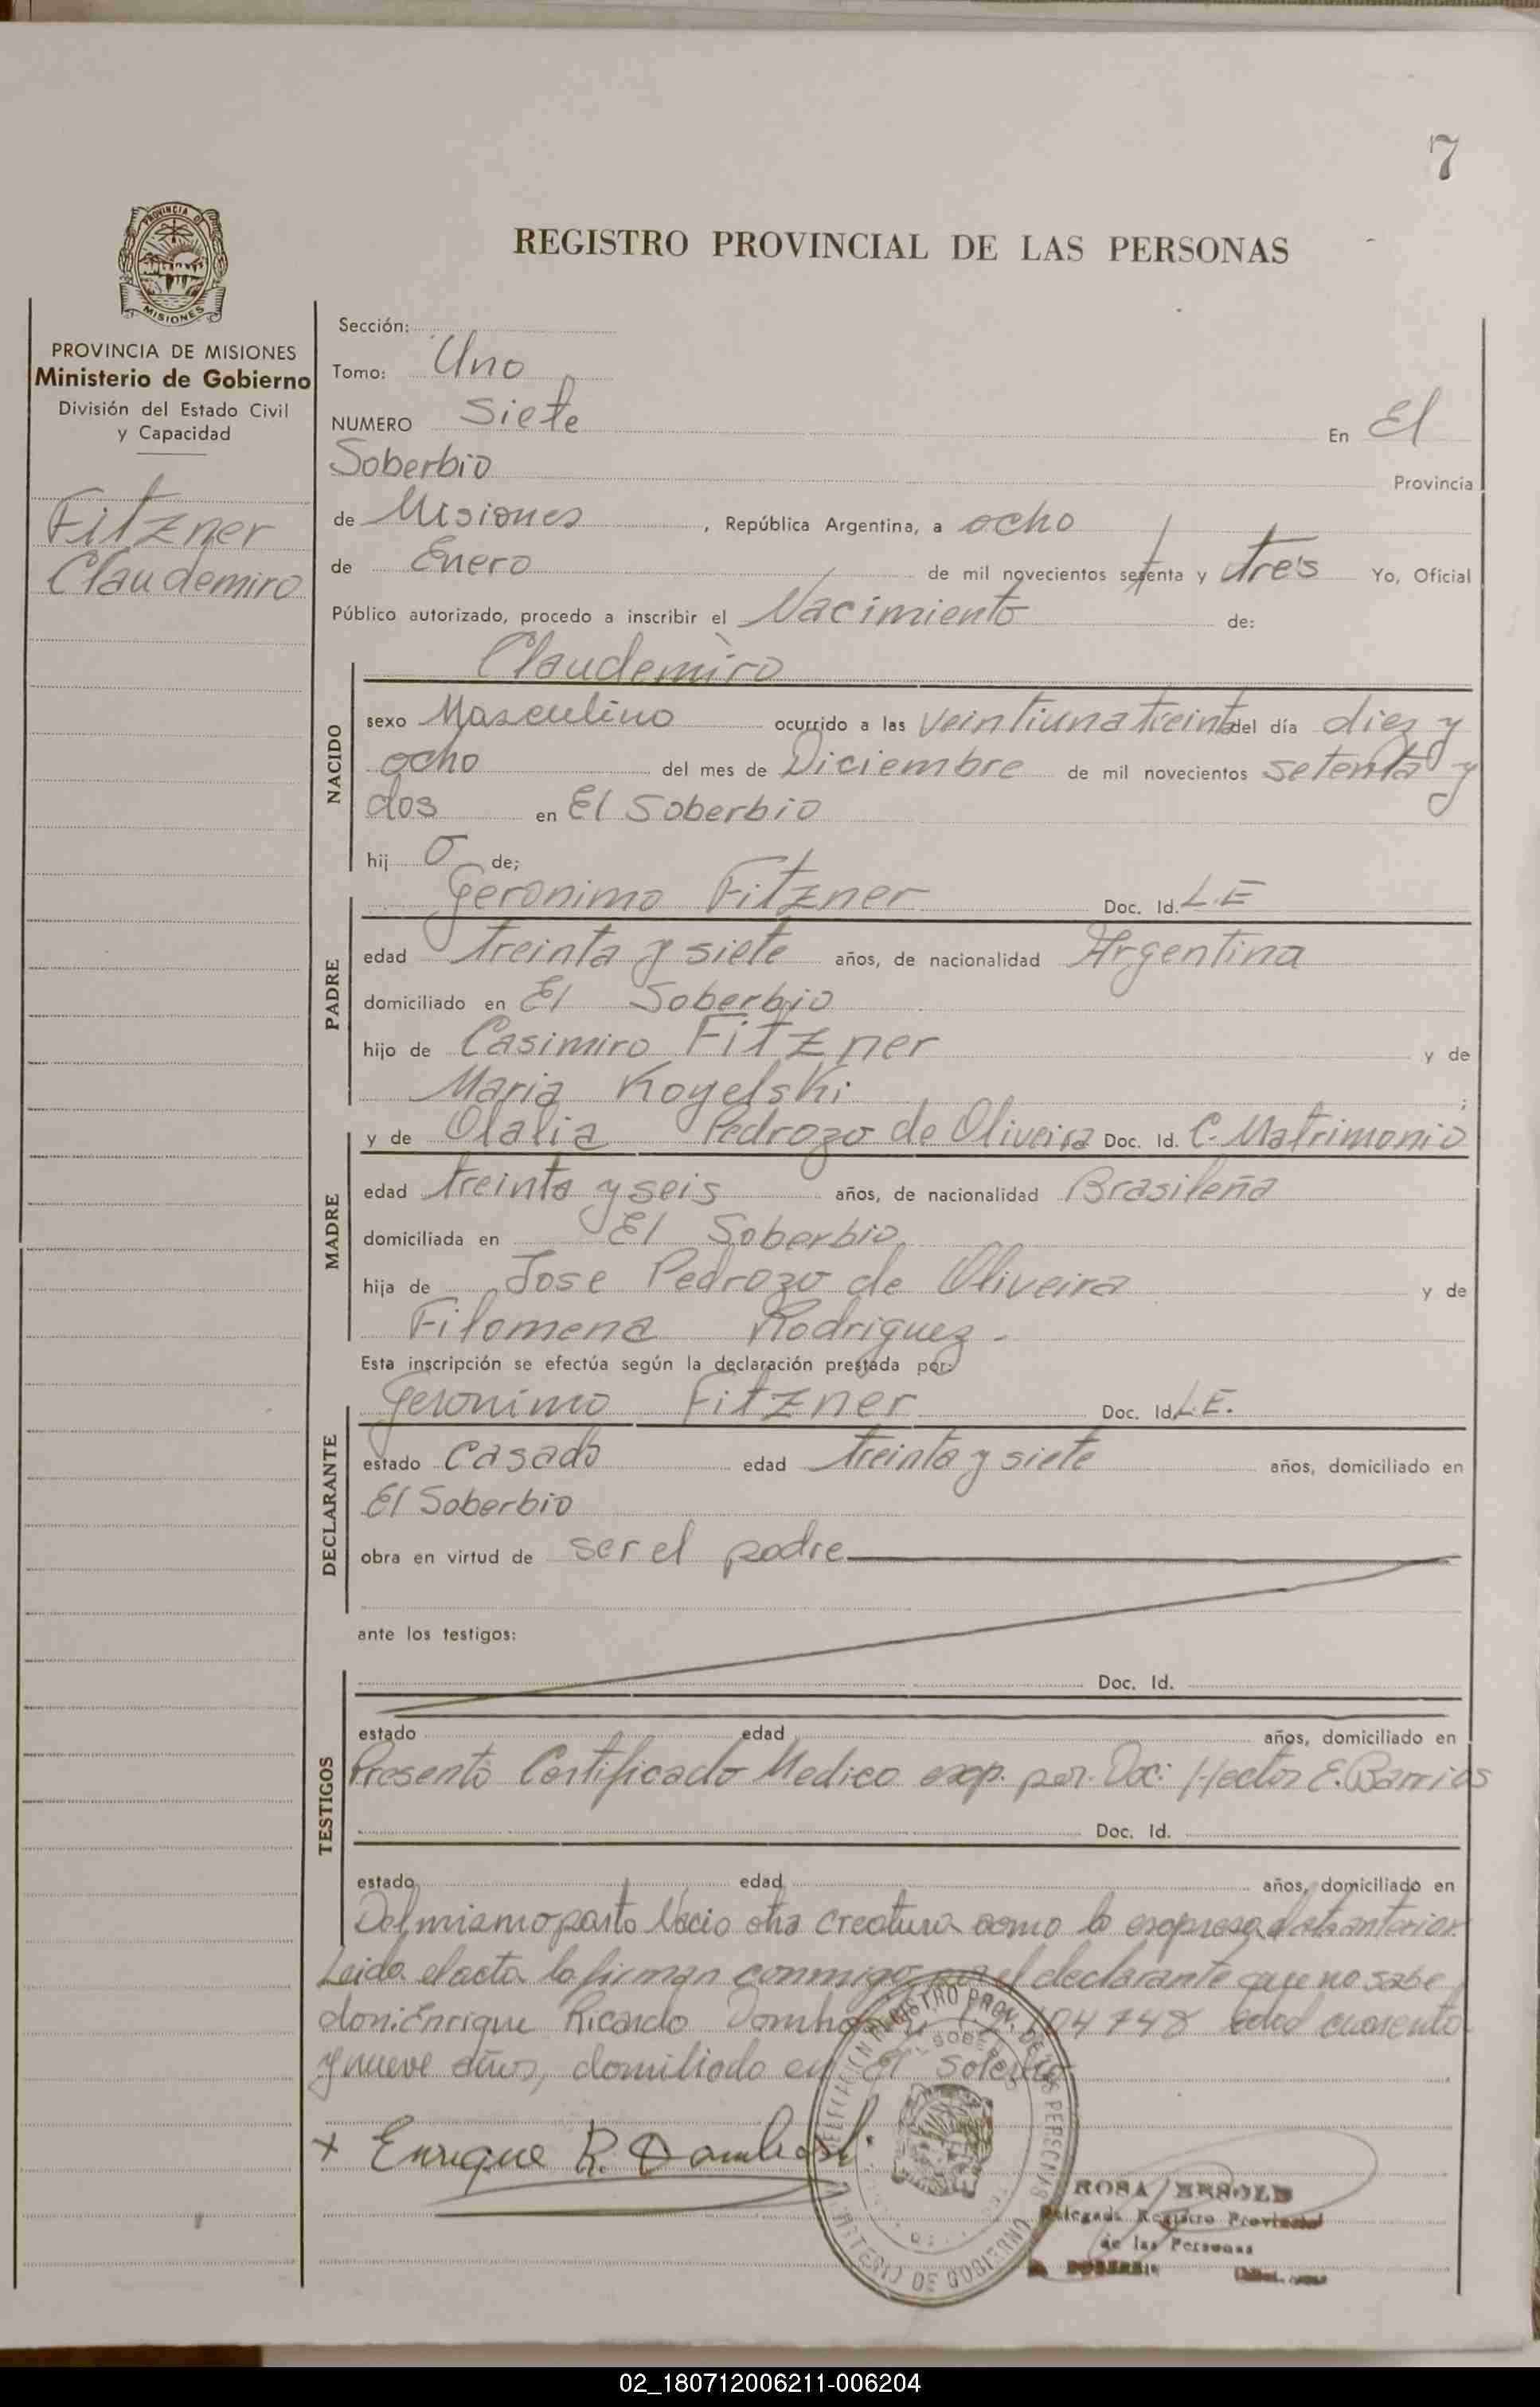 7
PROVINCIA DE
MISIONES
REGISTRO PROVINCIAL DE LAS PERSONAS
PROVINCIA DE MISIONES
Ministerio de Gobierno
División del Estado Civil
y Capacidad
Fitzner
Claudemiro
Sección:
Tomo: Uno
NUMERO Siete En El
Soberbio Provincia
de Misiones, República Argentina, a ocho
de Enero de mil novecientos setenta y tres Yo, Oficial
Público autorizado, procedo a inscribir el Nacimiento de:
Claudemiro
NACIDO
sexo Masculino ocurrido a las veintiuna treinta del día diez y
ocho del mes de Diciembre de mil novecientos setenta y
dos en El Soberbio
hij o de;
PADRE
Geronimo Fitzner Doc. Id. L.E
edad treinta y siete años, de nacionalidad Argentina
domiciliado en El Soberbio
hijo de Casimiro Fitzner y de
Maria Koyelski ;
MADRE
y de Olalia Pedrozo de Oliveira Doc. Id. C. Matrimonio
edad treinta y seis años, de nacionalidad Brasileña
domiciliada en El Soberbio
hija de Jose Pedrozo de Oliveira y de
Filomena Rodriguez.
Esta inscripción se efectúa según la declaración prestada por:
DECLARANTE
Geronimo Fitzner Doc. Id. L.E.
estado Casado edad treinta y siete años, domiciliado en
El Soberbio
obra en virtud de ser el padre
ante los testigos:
TESTIGOS
Doc. Id.
estado edad años, domiciliado en
Presento Certificado Medico exp. por. Doc: Hector E. Barrios
Doc. Id.
estado edad años, domiciliado en
Del mismo parto Nacio otra creatura como lo expresa el acta anterior.
Leida el acta la firman conmigo por el declarante que no sabe
don: Enrique Ricardo edad cuarenta
y nueve años, domiliado en El Soberbio
x Enrique R.
DELEGACION REGISTRO PROV. DE LAS PERSONAS
EL SOBERBIO
MINISTERIO DE GOBIERNO
ROSA
Delegada Registro Provincial
de las Personas
02_180712006211-006204